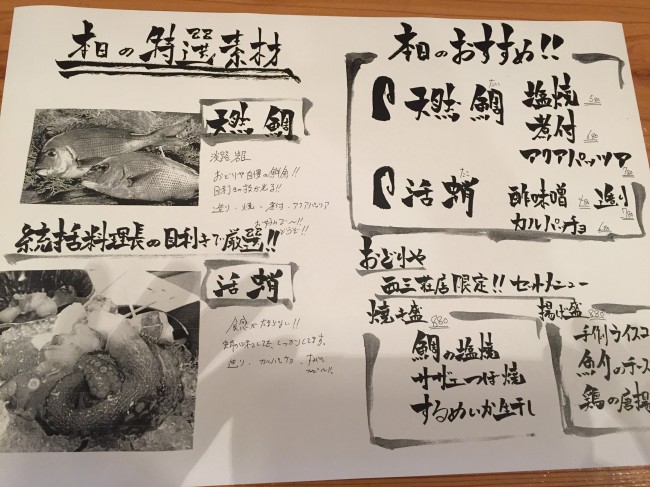 本日の特選素材
天然鯛
淡路、岩屋
おどりや自慢の鮮魚!!
目利きの技が光る!!
造り・焼・煮付・アクアパッツア
糸流括料理長の目利きで厳選!!
活蛸
食感がたまらない!!
造り・カルパッチョ・
本日のおすすめ!!
天然鯛 たい
塩焼
煮付
アクアパッツア
活蛸 たこ
酢味噌 造り
カルパッチョ
おどりや
西三荘店限定!! セットメニュー
焼き盛 880
鯛の塩焼
サザエつぼ焼
するめいか生干し
揚げ盛 880
手作りライスコ
鶏の唐揚